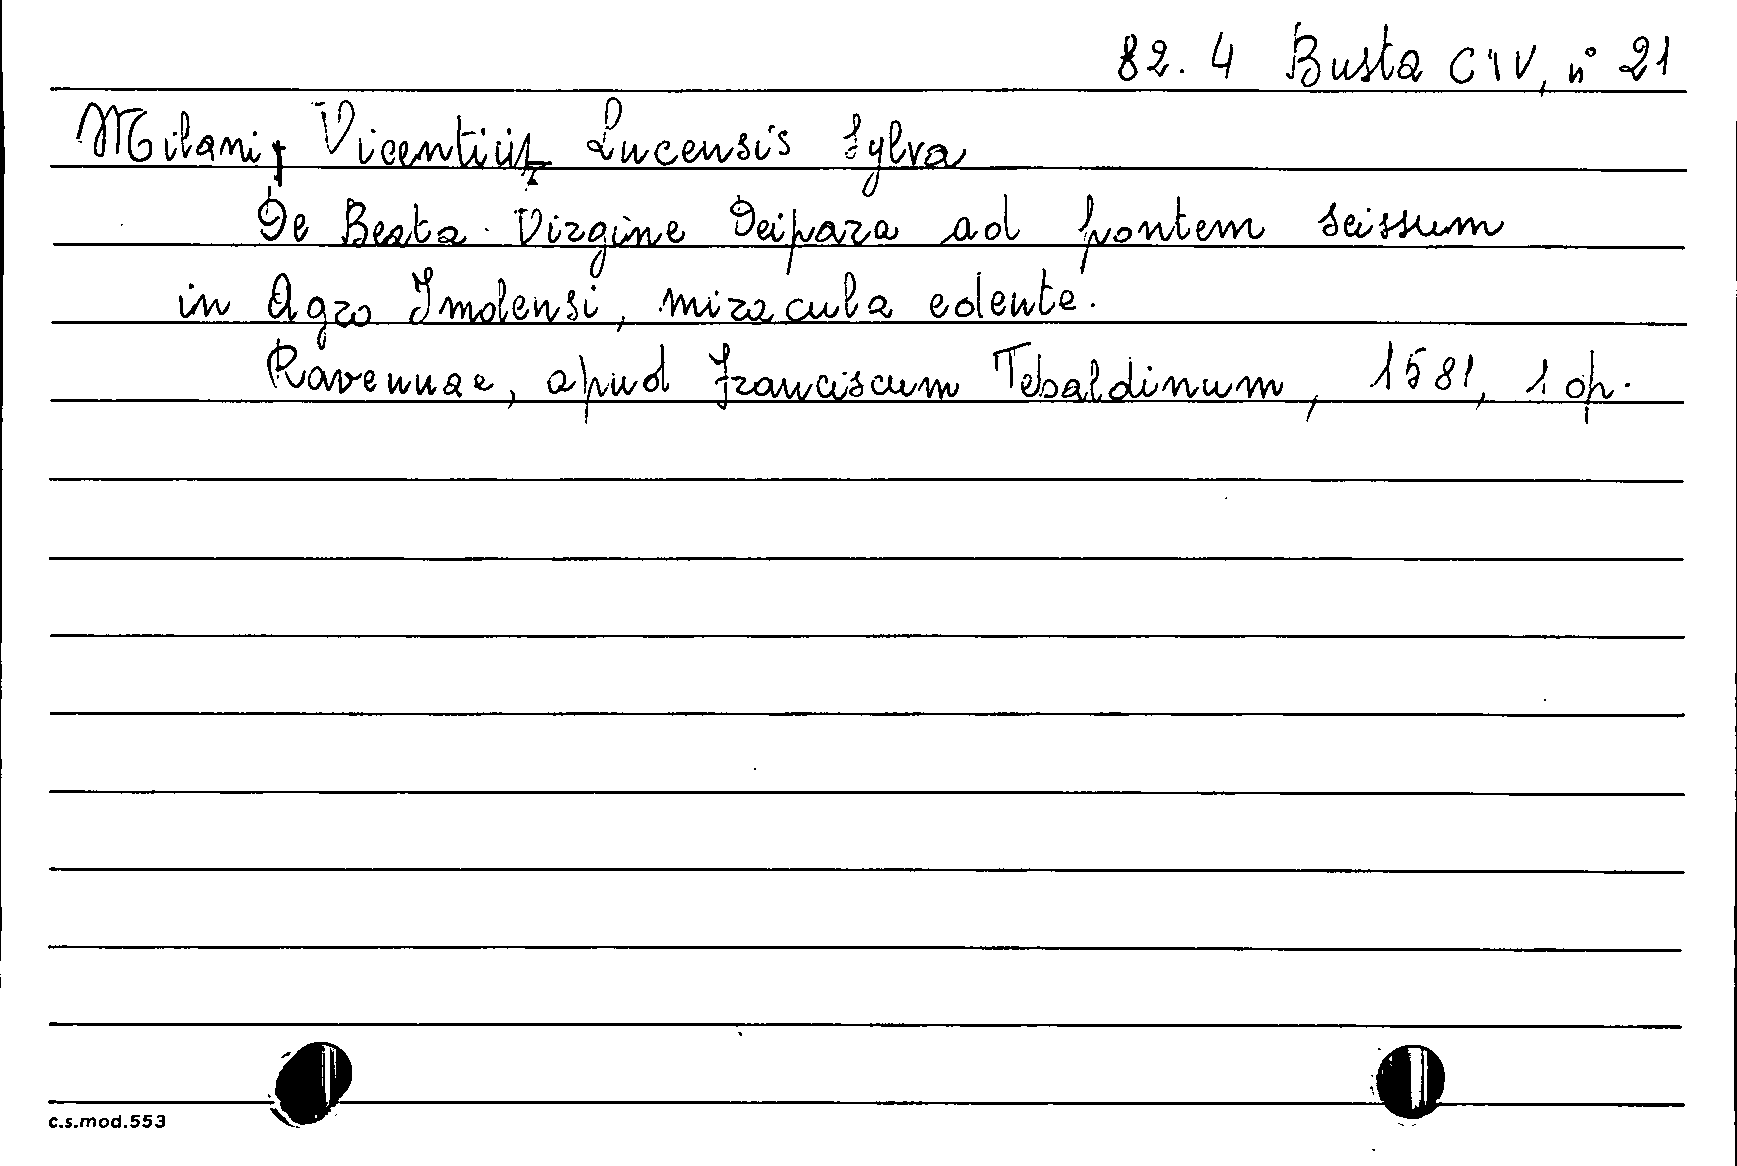 82.4 Busta CIV, n° 21
Milani, Vicentius Lucensis Sylva
De Beata Virgine Deipara ad pontem scissum
in Agro Imolensi, miracula edente.
Ravennae, apud Franciscum Tebaldinum, 1581, 1 op.
c.s.mod.553